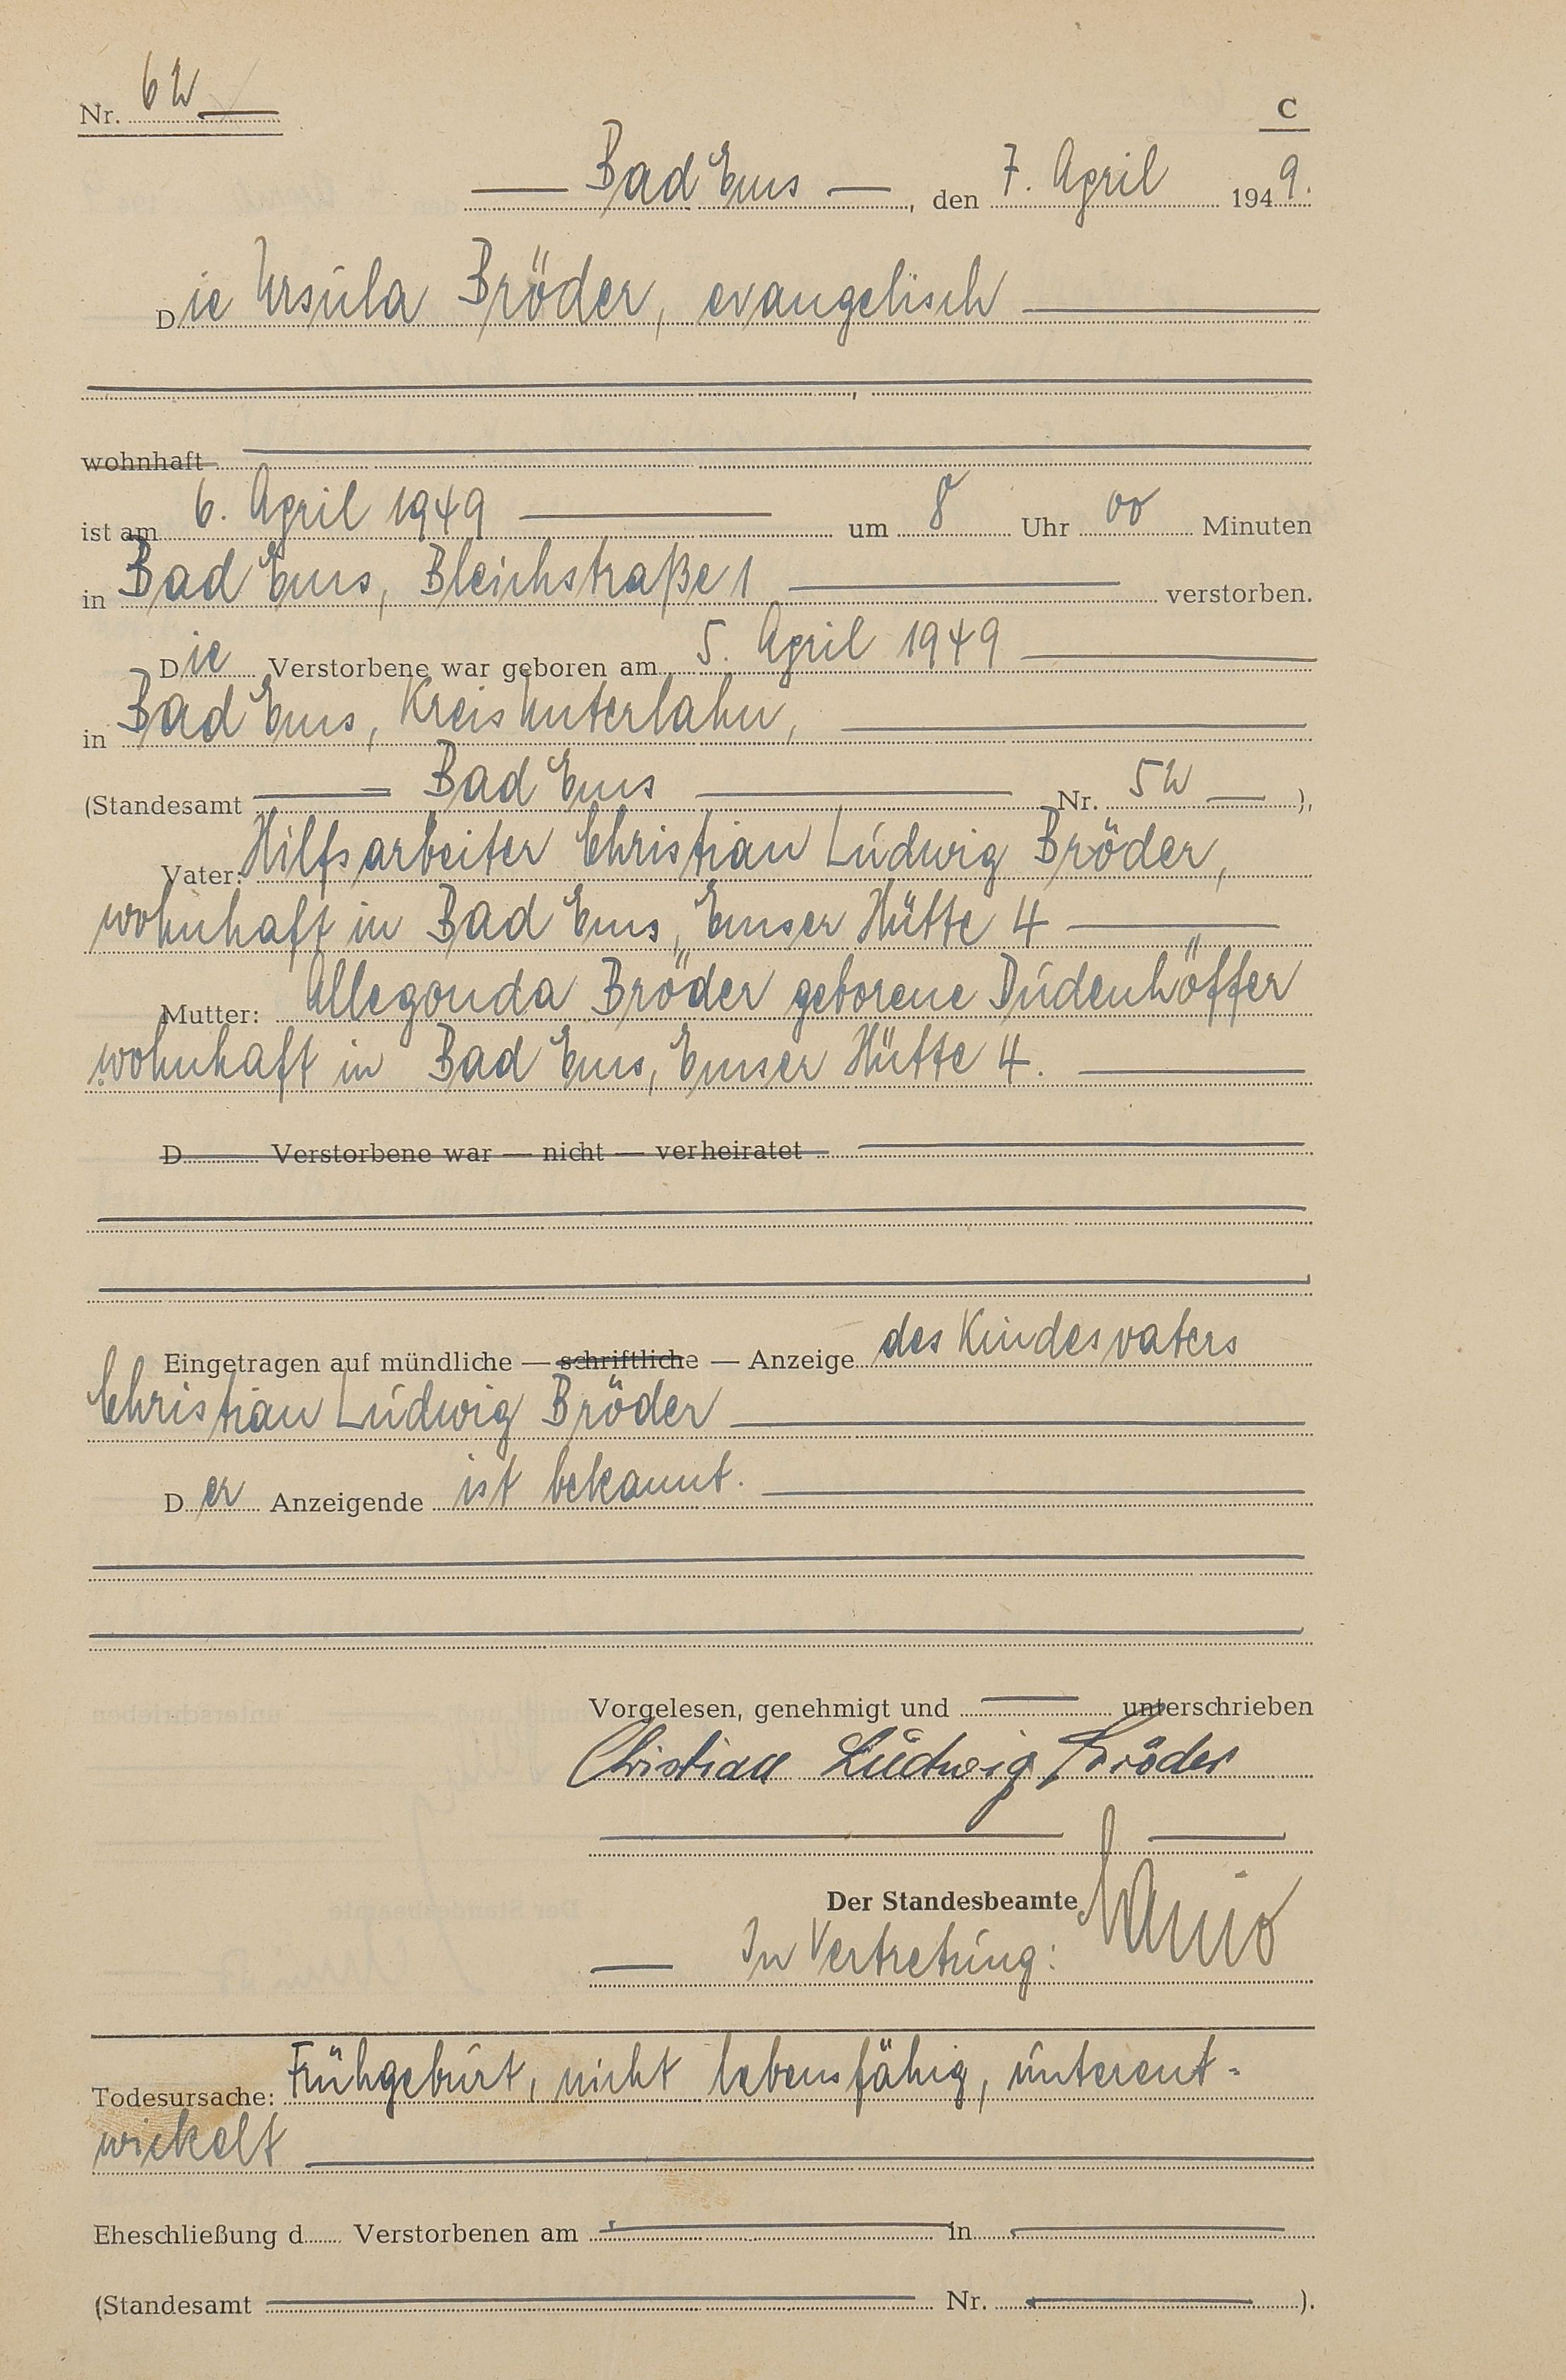 Nr. 62
C
Bad Ems, den 7. April 1949.
Die Ursula Bröder, evangelisch
,
wohnhaft
ist am 6. April 1949 um 8 Uhr 00 Minuten
in Bad Ems, Bleichstraße 1 verstorben.
Die Verstorbene war geboren am 5. April 1949
in Bad Ems, Kreis Unterlahn,
(Standesamt Bad Ems Nr. 52 ),
Vater: Hilfsarbeiter Christian Ludwig Bröder,
wohnhaft in Bad Ems, Emser Hütte 4
Mutter: Allegonda Bröder geborene Dudenhöffer
wohnhaft in Bad Ems, Emser Hütte 4.
D Verstorbene war — nicht — verheiratet
Eingetragen auf mündliche — schriftliche — Anzeige des Kindesvaters
Christian Ludwig Bröder
Der Anzeigende ist bekannt.
Vorgelesen, genehmigt und unterschrieben
Christian Ludwig Bröder
Der Standesbeamte
In Vertretung:
Todesursache: Frühgeburt, nicht lebensfähig, unterent-
wickelt
Eheschließung d Verstorbenen am in
(Standesamt Nr. ).